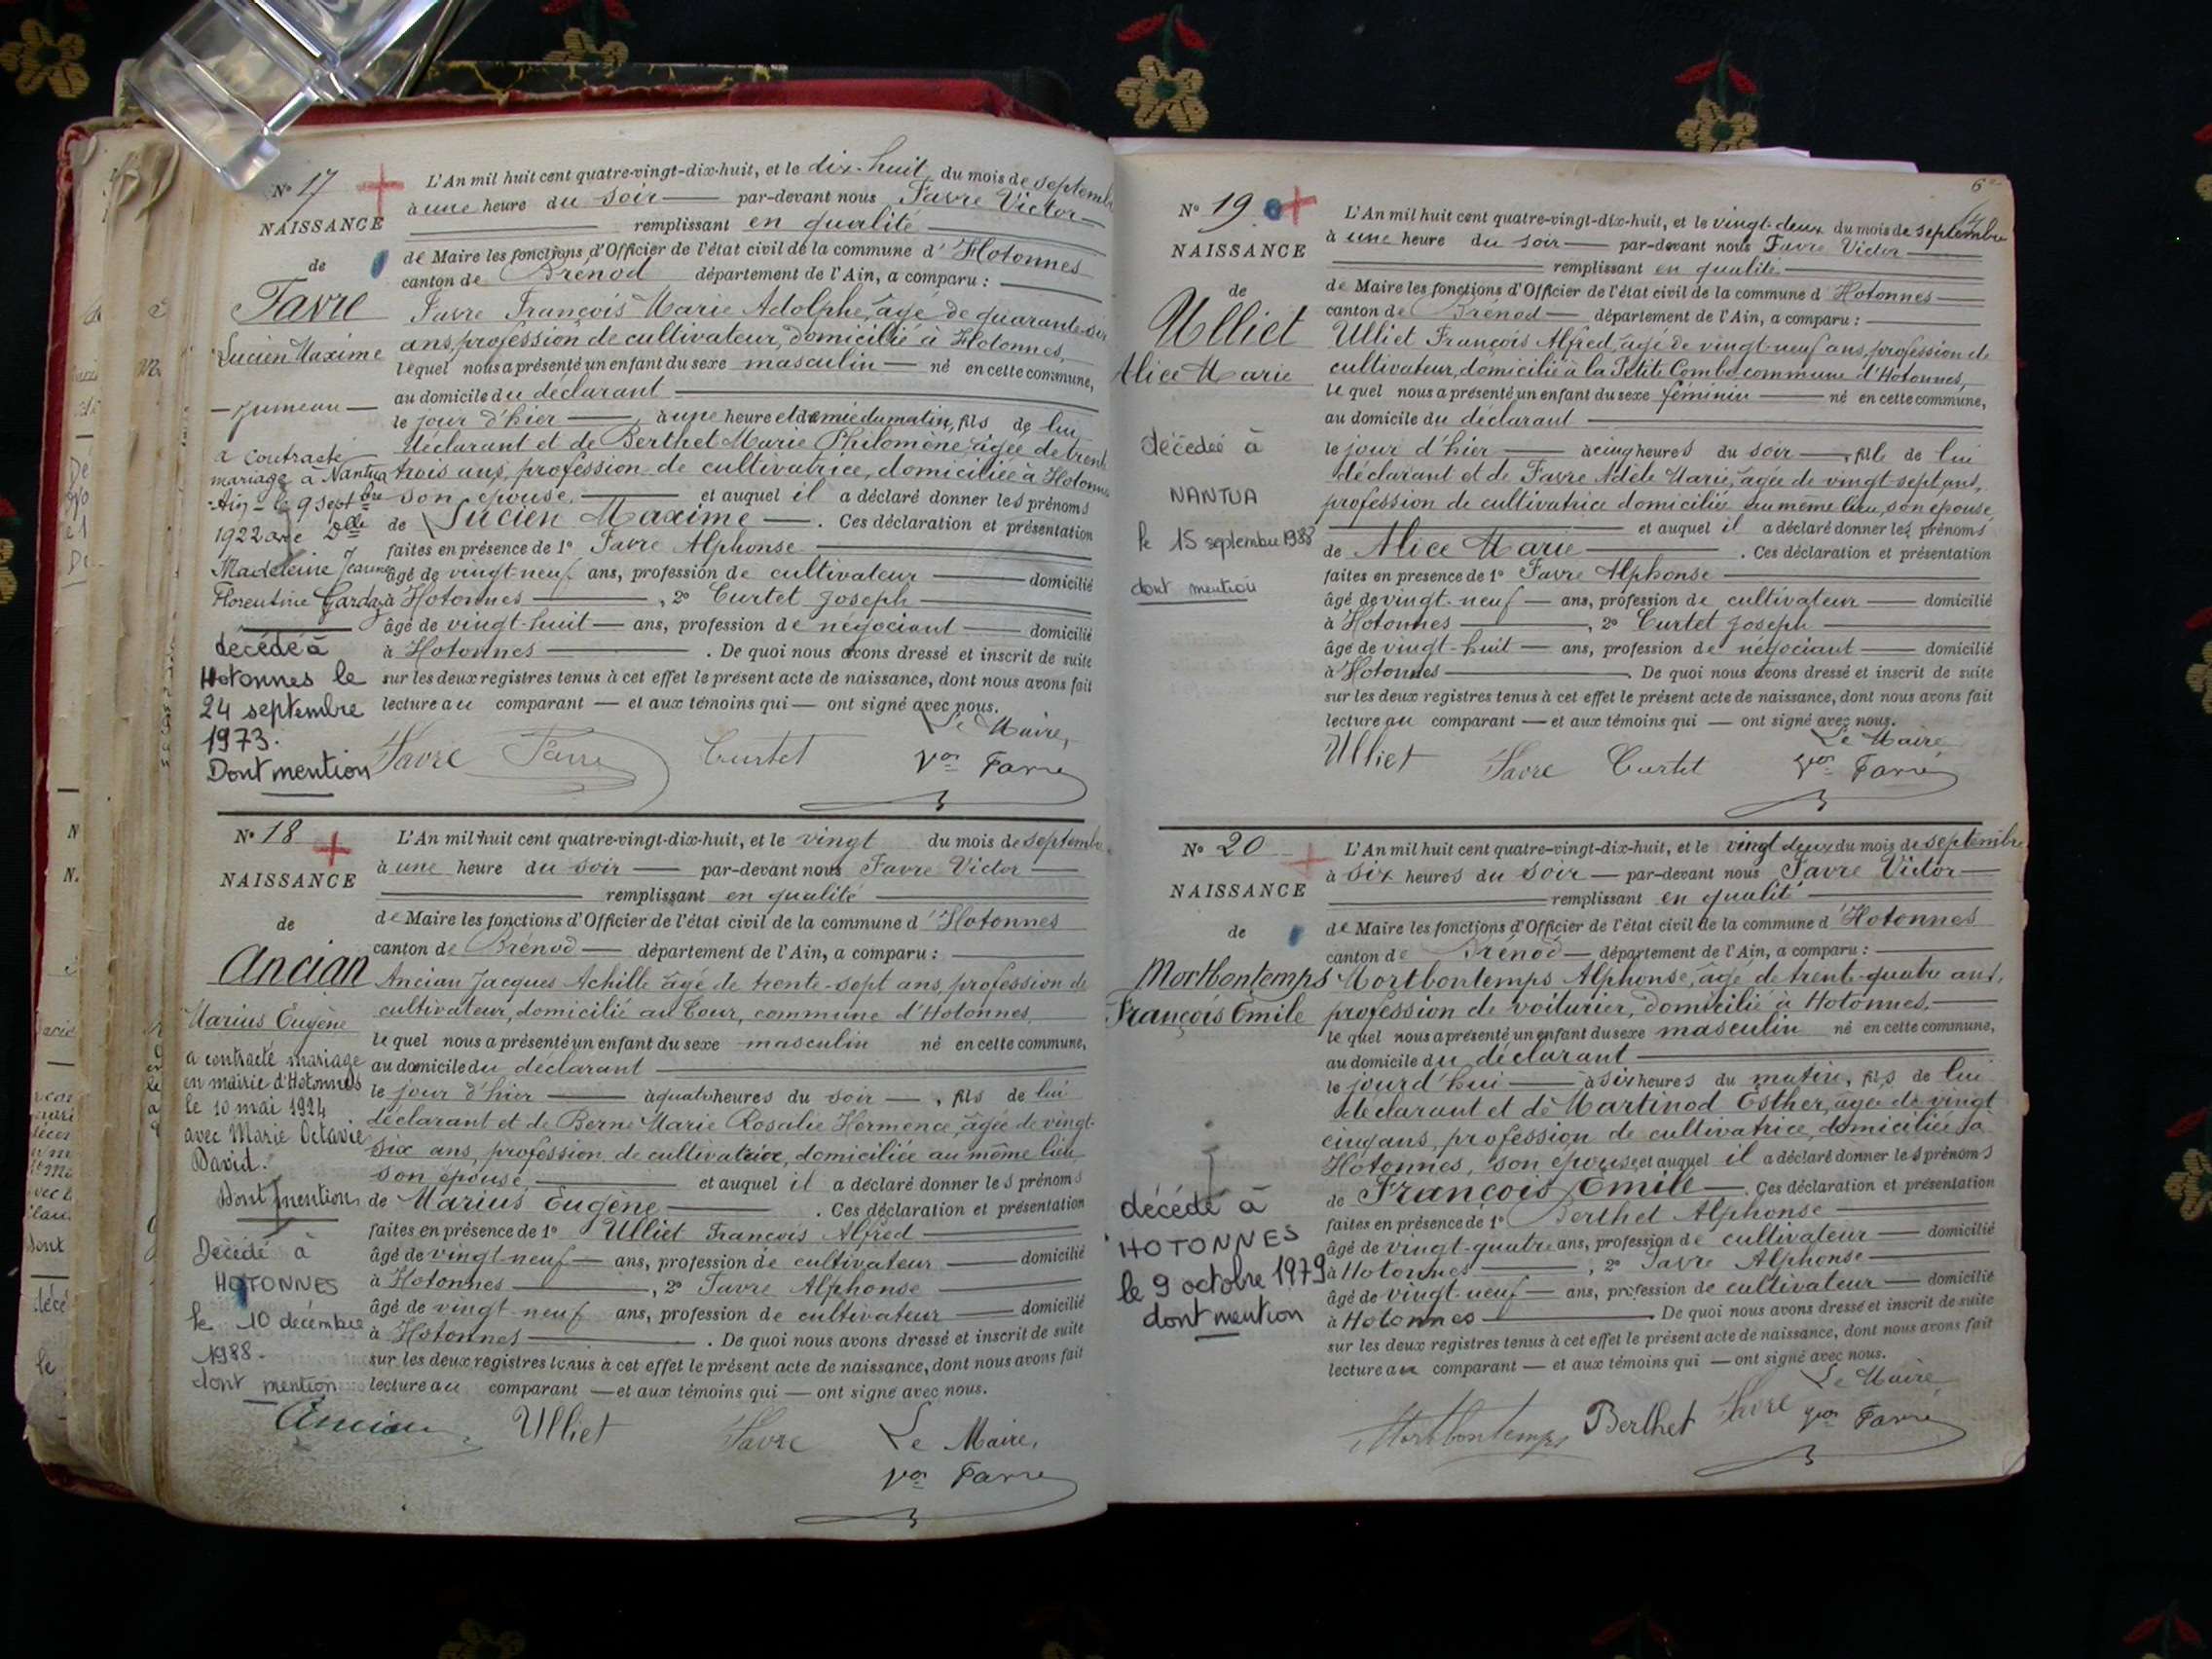 N° 17
NAISSANCE
de
Favre
Lucien Maxime
— Jumeau —
a contracté
mariage à Nantua
- Ain - le 9 Septbre
1922 avec Dlle
Madeleine Jeanne
Florentine Gardaz
décédé à
Hotonnes le
24 septembre
1973.
Dont mention
L'An mil huit cent quatre-vingt-dix-huit, et le dix-huit du mois de septembre
à une heure du soir — par-devant nous Favre Victor —
remplissant en qualité
de Maire les fonctions d'Officier de l'état civil de la commune d'Hotonnes
canton de Brénod département de l'Ain, a comparu :
Favre François Marie Adolphe, âgé de quarante-six
ans, profession de cultivateur, domicilié à Hotonnes,
lequel nous a présenté un enfant du sexe masculin — né en cette commune,
au domicile du déclarant
le jour d'hier — à une heure et demie du matin, fils de lui
déclarant et de Berthet Marie Philomène, âgée de trente
trois ans, profession de cultivatrice, domiciliée à Hotonnes
son épouse, — et auquel il a déclaré donner les prénoms
de Lucien Maxime — . Ces déclaration et présentation
faites en présence de 1° Favre Alphonse
âgé de vingt-neuf ans, profession de cultivateur — domicilié
à Hotonnes — , 2° Curtet Joseph
âgé de vingt-huit — ans, profession de négociant — domicilié
à Hotonnes — . De quoi nous avons dressé et inscrit de suite
sur les deux registres tenus à cet effet le présent acte de naissance, dont nous avons fait
lecture au comparant — et aux témoins qui — ont signé avec nous.
Le Maire,
Favre Favre Curtet Vor Favre
N° 18
NAISSANCE
de
Ancian
Marius Eugène
a contracté mariage
en mairie d'Hotonnes
le 10 mai 1924
avec Marie Octavie
David.
Dont mention
Décédé à
HOTONNES
le 10 décembre
1988.
dont mention
L'An mil huit cent quatre-vingt-dix-huit, et le vingt du mois de septembre
à une heure du soir — par-devant nous Favre Victor —
remplissant en qualité
de Maire les fonctions d'Officier de l'état civil de la commune d'Hotonnes
canton de Brénod — département de l'Ain, a comparu :
Ancian Jacques Achille âgé de trente-sept ans, profession de
cultivateur, domicilié au Cour, commune d'Hotonnes,
lequel nous a présenté un enfant du sexe masculin né en cette commune,
au domicile du déclarant
le jour d'hier — à quatre heures du soir — , fils de lui
déclarant et de Berne Marie Rosalie Hermence, âgée de vingt-
six ans, profession de cultivatrice, domiciliée au même lieu
son épouse, — et auquel il a déclaré donner les prénoms
de Marius Eugène — . Ces déclaration et présentation
faites en présence de 1° Ulliet François Alfred
âgé de vingt-neuf — ans, profession de cultivateur — domicilié
à Hotonnes — , 2° Favre Alphonse
âgé de vingt-neuf ans, profession de cultivateur — domicilié
à Hotonnes — . De quoi nous avons dressé et inscrit de suite
sur les deux registres tenus à cet effet le présent acte de naissance, dont nous avons fait
lecture au comparant — et aux témoins qui — ont signé avec nous.
Ancian Ulliet Favre Le Maire,
Vor Favre
N° 19
NAISSANCE
de
Ulliet
Alice Marie
décédée à
NANTUA
le 15 septembre 1988
dont mention
L'An mil huit cent quatre-vingt-dix-huit, et le vingt-deux du mois de septembre
à une heure du soir — par-devant nous Favre Victor
remplissant en qualité
de Maire les fonctions d'Officier de l'état civil de la commune d'Hotonnes
canton de Brénod — département de l'Ain, a comparu :
Ulliet François Alfred, âgé de vingt-neuf ans, profession de
cultivateur, domicilié à la Petite Combe, commune d'Hotonnes,
lequel nous a présenté un enfant du sexe féminin — né en cette commune,
au domicile du déclarant
le jour d'hier — à cinq heures du soir — , fille de lui
déclarant et de Favre Adèle Marie, âgée de vingt-sept ans,
profession de cultivatrice domiciliée au même lieu, son épouse,
et auquel il a déclaré donner les prénoms
de Alice Marie — . Ces déclaration et présentation
faites en présence de 1° Favre Alphonse
âgé de vingt-neuf — ans, profession de cultivateur — domicilié
à Hotonnes — , 2° Curtet Joseph
âgé de vingt-huit — ans, profession de négociant — domicilié
à Hotonnes — . De quoi nous avons dressé et inscrit de suite
sur les deux registres tenus à cet effet le présent acte de naissance, dont nous avons fait
lecture au comparant — et aux témoins qui — ont signé avec nous.
Le Maire
Ulliet Favre Curtet Vor Favre
N° 20
NAISSANCE
de
Mortbontemps
François Émile
décédé à
HOTONNES
le 9 octobre 1979
dont mention
L'An mil huit cent quatre-vingt-dix-huit, et le vingt deux du mois de septembre
à six heures du soir — par-devant nous Favre Victor —
remplissant en qualité
de Maire les fonctions d'Officier de l'état civil de la commune d'Hotonnes
canton de Brénod — département de l'Ain, a comparu :
Mortbontemps Alphonse, âgé de trente-quatre ans,
profession de voiturier, domicilié à Hotonnes, —
lequel nous a présenté un enfant du sexe masculin né en cette commune,
au domicile du déclarant
le jour d'hui — à six heures du matin, fils de lui
déclarant et de Martinod Esther, âgée de vingt
cinq ans, profession de cultivatrice, domiciliée à
Hotonnes, son épouse et auquel il a déclaré donner les prénoms
de François Émile — . Ces déclaration et présentation
faites en présence de 1° Berthet Alphonse
âgé de vingt-quatre ans, profession de cultivateur — domicilié
à Hotonnes — , 2° Favre Alphonse
âgé de vingt-neuf — ans, profession de cultivateur — domicilié
à Hotonnes — . De quoi nous avons dressé et inscrit de suite
sur les deux registres tenus à cet effet le présent acte de naissance, dont nous avons fait
lecture au comparant — et aux témoins qui — ont signé avec nous.
Le Maire
Mortbontemps Berthet Favre Vor Favre